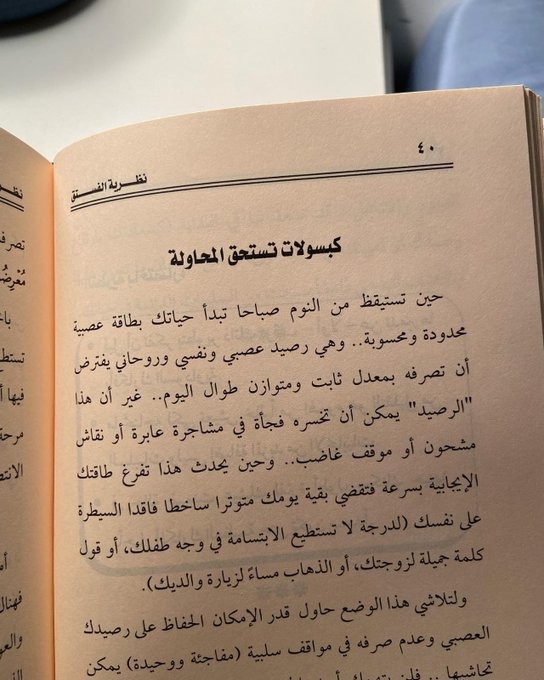 ٤٠
نظرية الفستق
كبسولات تستحق المحاولة
حين تستيقظ من النوم صباحا تبدأ حياتك بطاقة عصبية
محدودة ومحسوبة.. وهي رصيد عصبي ونفسي وروحاني يفترض
أن تصرفه بمعدل ثابت ومتوازن طوال اليوم.. غير أن هذا
"الرصيد" يمكن أن تخسره فجأة في مشاجرة عابرة أو نقاش
مشحون أو موقف غاضب.. وحين يحدث هذا تفرغ طاقتك
الإيجابية بسرعة فتقضي بقية يومك متوترا ساخطا فاقدا السيطرة
على نفسك (لدرجة لا تستطيع الابتسامة في وجه طفلك، أو قول
كلمة جميلة لزوجتك، أو الذهاب مساءً لزيارة والديك).
ولتلاشي هذا الوضع حاول قدر الإمكان الحفاظ على رصيدك
العصبي وعدم صرفه في مواقف سلبية (مفاجئة ووحيدة) يمكن
تحاشيها .. فلن